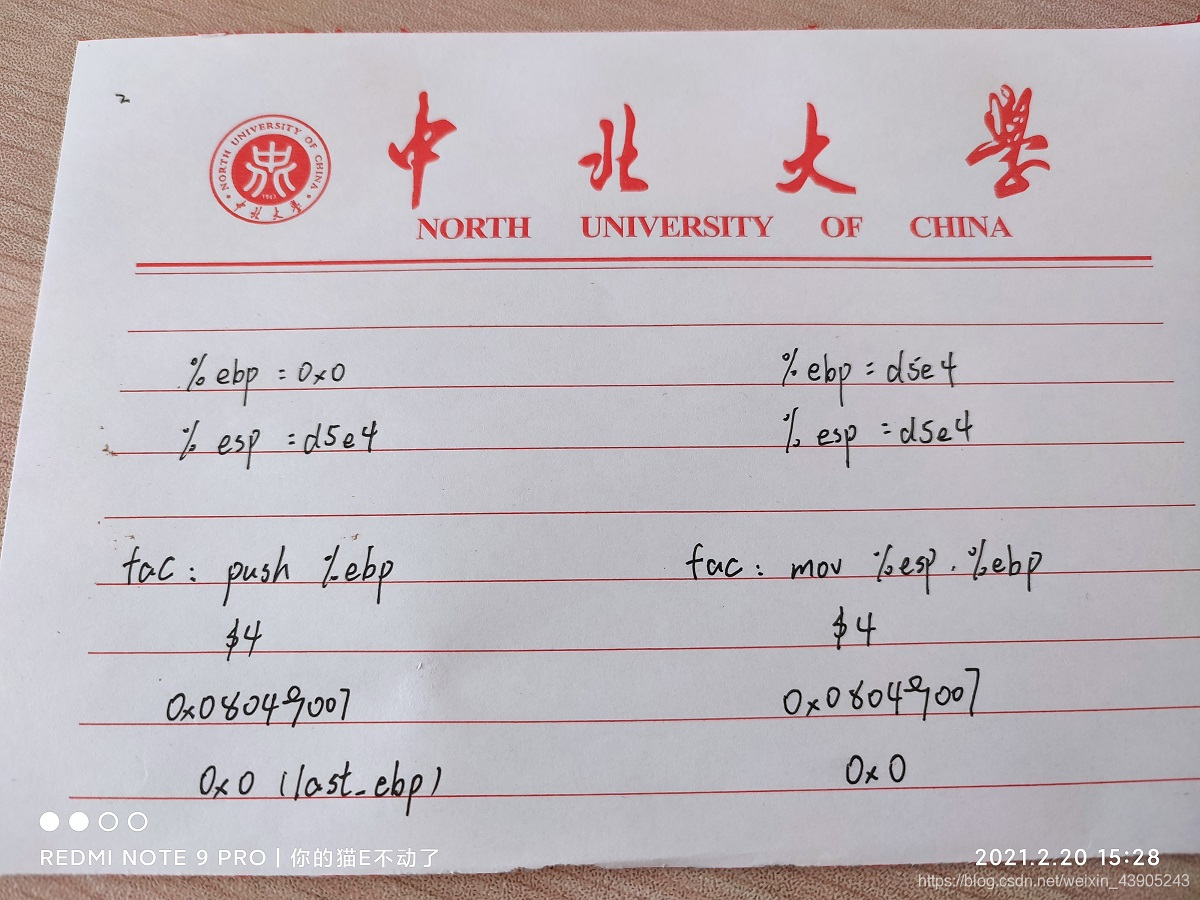 2
中北大学
NORTH UNIVERSITY OF CHINA
NORTH UNIVERSITY OF CHINA
1941
中北大学
%ebp = 0x0
%ebp = d5e4
%esp = d5e4
%esp = d5e4
fac: push %ebp
fac: mov %esp, %ebp
$4
$4
0x08049007
0x08049007
0x0 (last_ebp)
0x0
REDMI NOTE 9 PRO | 你的猫E不动了
2021.2.20 15:28
https://blog.csdn.net/weixin_43905243